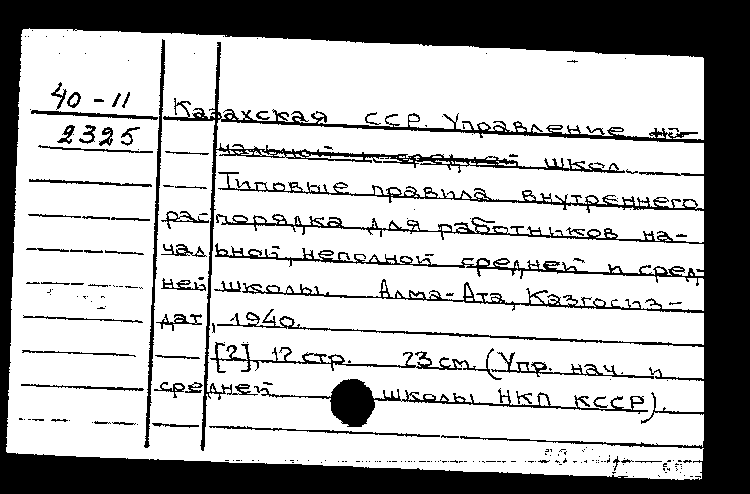 40-11
2325
Казахская ССР. Управление на-
чальной и средней школ.
Типовые правила внутреннего
распорядка для работников на-
чальной, неполной средней и сред-
ней школы. Алма-Ата, Казгосиз-
дат, 1940.
[2], 12 стр. 23 см. (Упр. нач. и
средней школы НКП КССР).